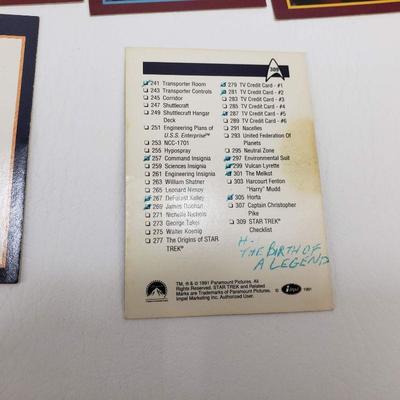 309
241 Transporter Room
243 Transporter Controls
245 Corridor
247 Shuttlecraft
249 Shuttlecraft Hangar
Deck
251 Engineering Plans of
U.S.S. Enterprise™
253 NCC-1701
255 Hypospray
257 Command Insignia
259 Sciences Insignia
261 Engineering Insignia
263 William Shatner
265 Leonard Nimoy
267 DeForest Kelley
269 James Doohan
271 Nichelle Nichols
273 George Takei
275 Walter Koenig
277 The Origins of STAR
TREK®
279 TV Credit Card - #1
281 TV Credit Card - #2
283 TV Credit Card - #3
285 TV Credit Card - #4
287 TV Credit Card - #5
289 TV Credit Card - #6
291 Nacelles
293 United Federation Of
Planets
295 Neutral Zone
297 Environmental Suit
299 Vulcan Lyrette
301 The Melkot
303 Harcourt Fenton
"Harry" Mudd
305 Horta
307 Captain Christopher
Pike
309 STAR TREK®
Checklist
H-
THE BIRTH OF
A LEGEND
TM, ® & © 1991 Paramount Pictures. All
Rights Reserved. STAR TREK and Related
Marks are Trademarks of Paramount Pictures.
Impel Marketing Inc. Authorized User.
© impel 1991